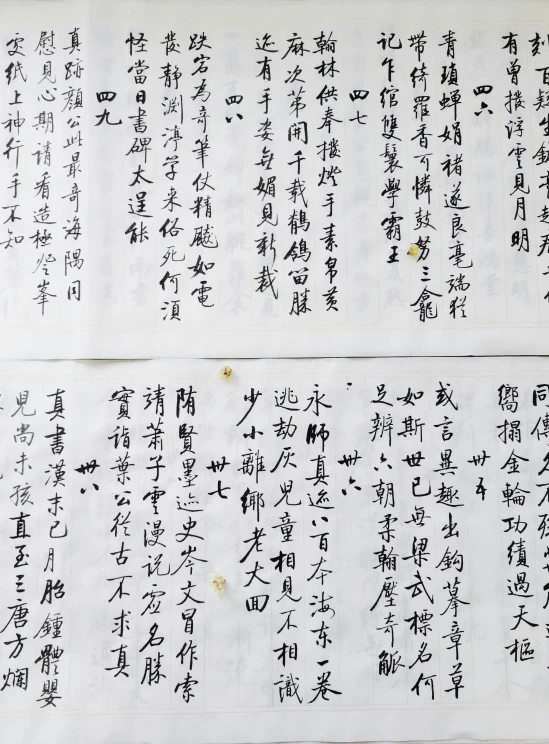 有曾樓浮雲見月明
四六
青瑣蟬娟褚遂良毫端猶
帶綺羅香可憐鼓努三龕
記乍綰雙鬟學霸王
四七
翰林供奉撥燈手素帛黄
麻次第開千載鶺鴒留勝
迹有手姿無媚見新裁
四八
跌宕為奇筆仗精飈如電
發靜淵渟学来俗死何須
怪當日書碑太逞能
四九
真跡顏公此最奇海隅同
慰見心期請看造極登峯
處紙上神行手不知
嚮搨金輪功績過天樞
卅五
或言異趣出鈎摹章草
如斯世已無梁武標名何
足辨六朝柔翰壓奇觚
卅六
永師真迹八百本海东一卷
逃劫灰兒童相見不相識
少小離鄉老大回
卅七
隋賢墨迹史岑文冒作索
靖蕭子雲漫说虛名勝
實詣葉公從古不求真
卅八
真書漢末已月胎鍾體嬰
兒尚未孩直至三唐方爛